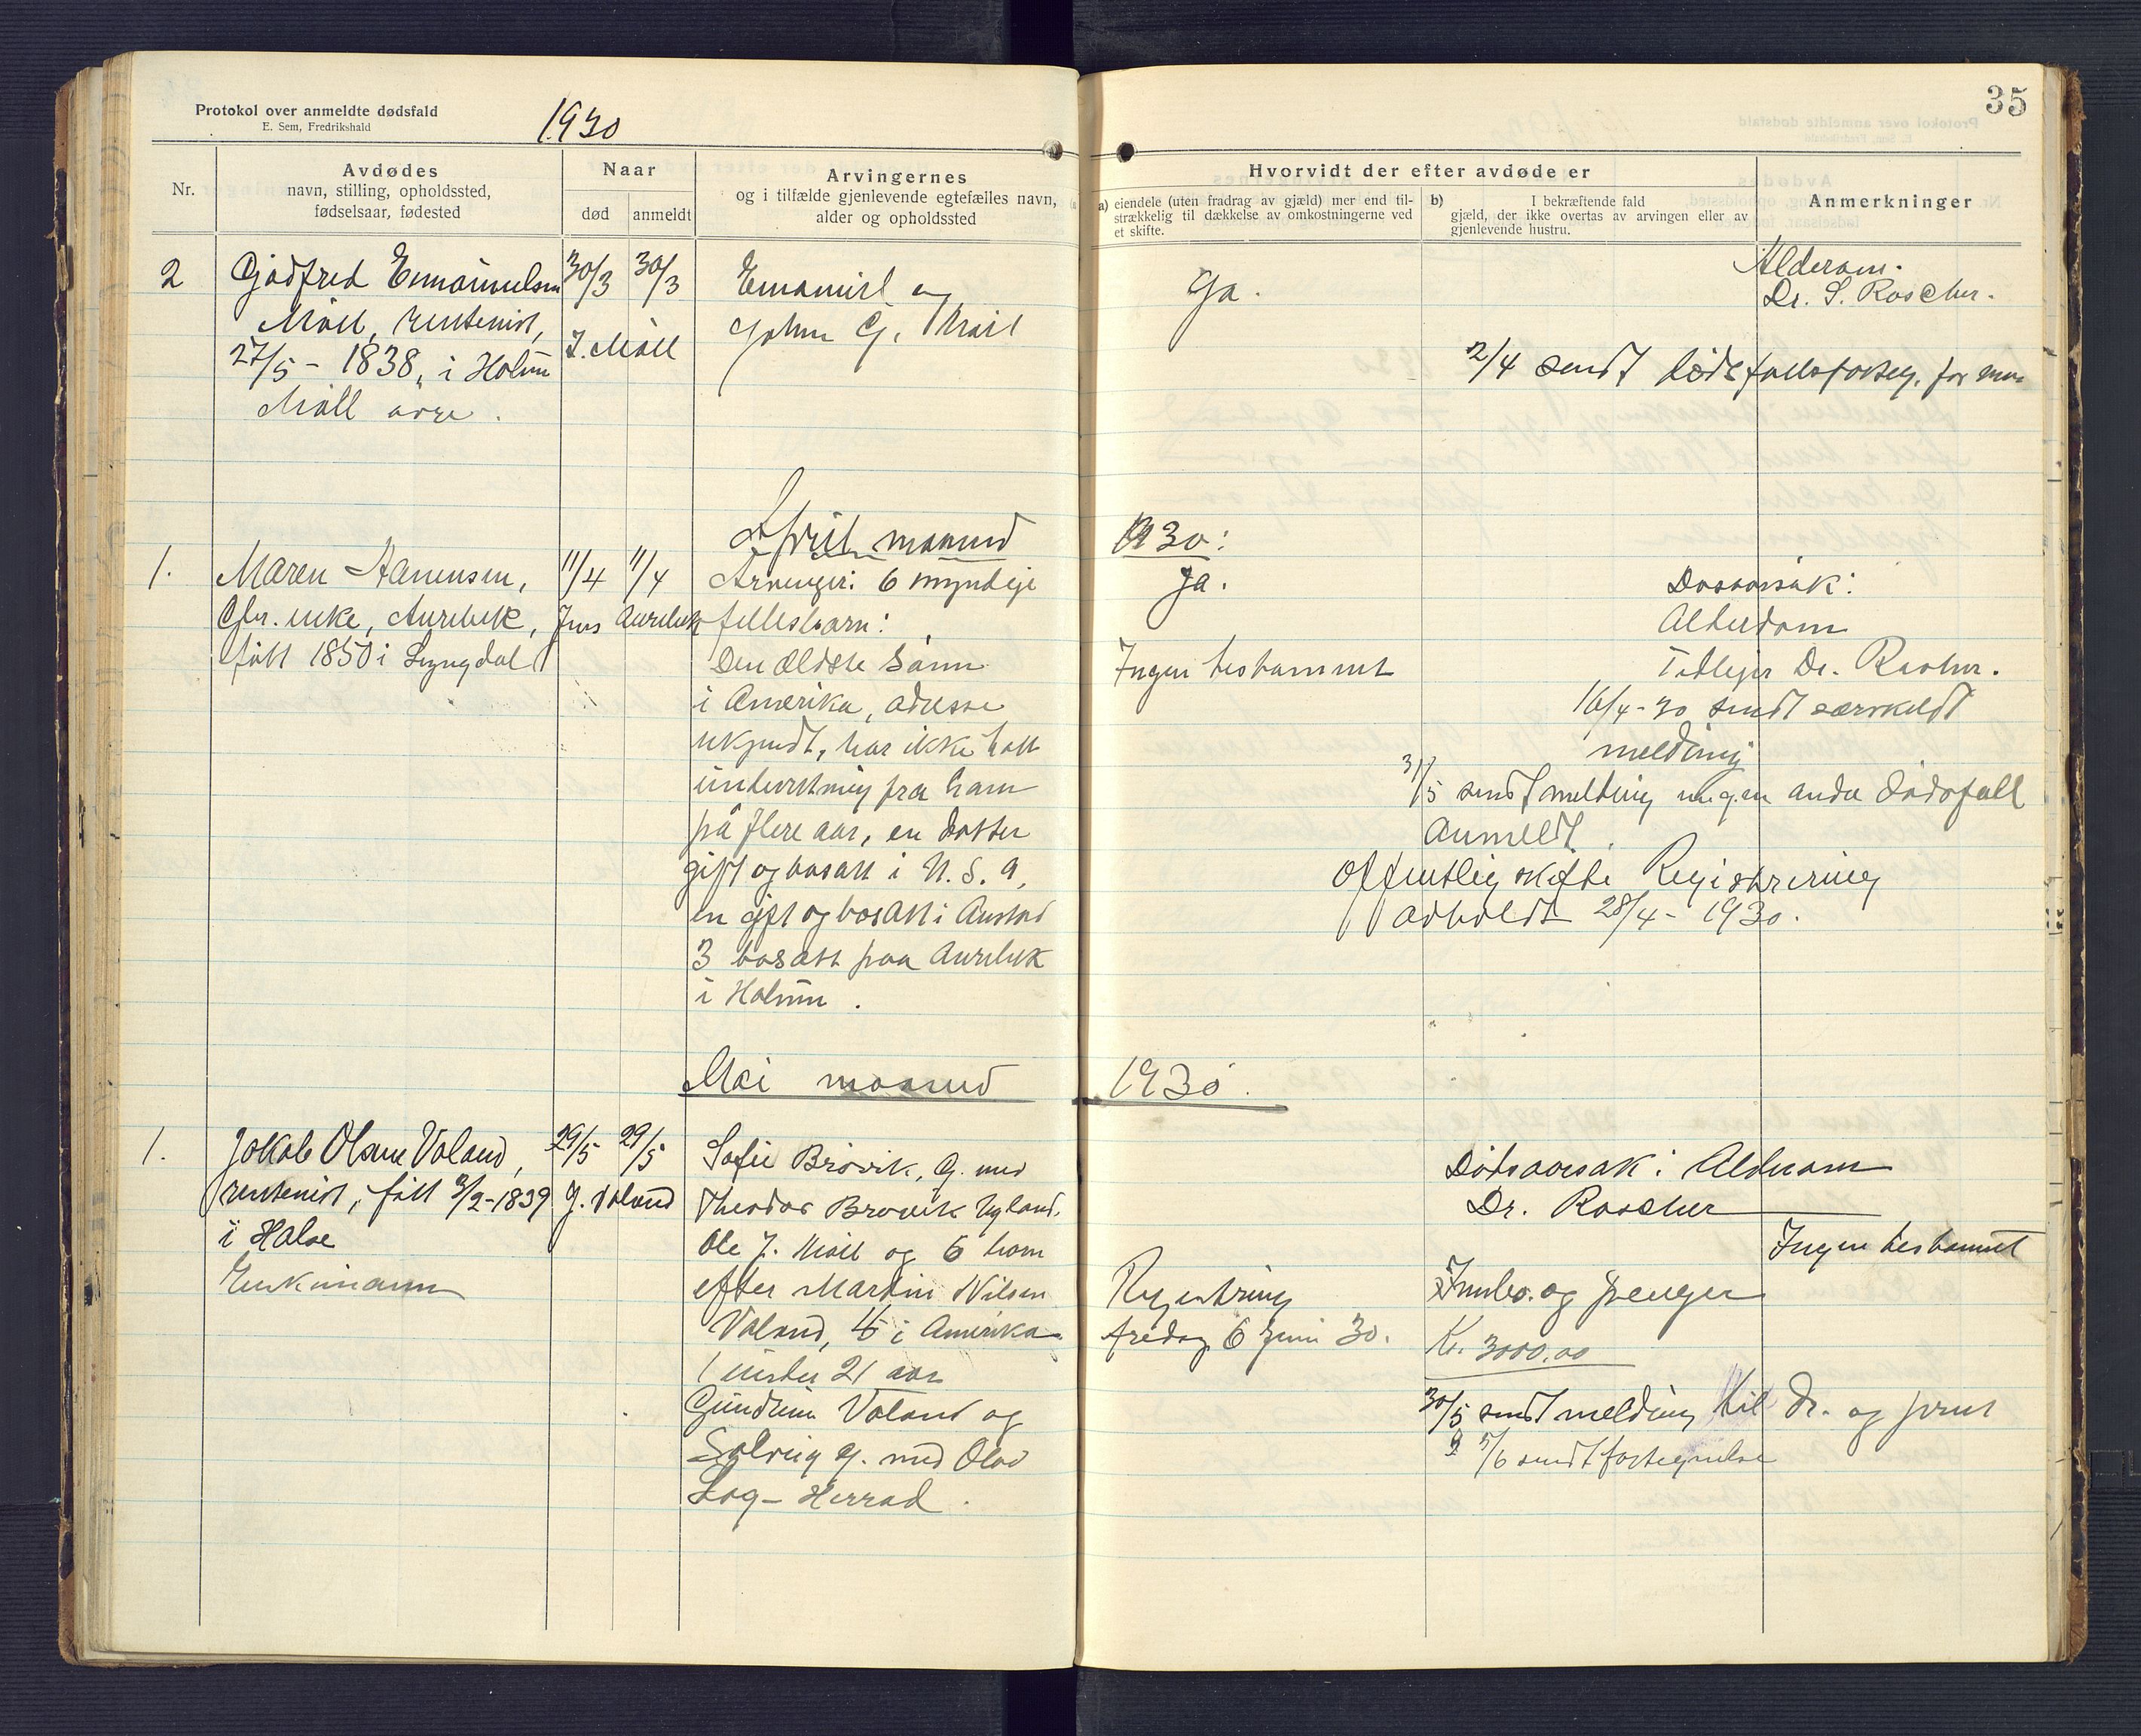 Protokol over anmeldte dødsfald
E. Sem, Fredrikshald
1930
35
Nr.
Avdødes
navn, stilling, opholdssted,
fødselsaar, fødested
Naar
død
anmeldt
Arvingernes
og i tilfælde gjenlevende egtefælles navn,
alder og opholdssted
Hvorvidt der efter avdøde er
a) eiendele (uten fradrag av gjæld) mer end til-
strækkelig til dækkelse av omkostningerne ved
et skifte.
b) I bekræftende fald
gjæld, der ikke overtas av arvingen eller av
gjenlevende hustru.
Anmerkninger
2
Gjødfred Emanuelsen
Møll, rentenist,
27/5 - 1838, i Holum
Møll øvre.
30/3 30/3
J. Møll
Emanuel og
John G. Møll
Ja.
Alderdom.
Dr. S. Roscher.
2/4 sendt dødsfallsforteg. for mars
April maaned
1930:
1.
Maren Hanensen,
Gbr. enke, Aurebek,
født 1850 i Lyngdal
11/4 11/4
Jens Aurebek
Arvinger: 6 myndige
fellesbarn:
Den eldste sønn
i Amerika, adresse
ukjendt, har ikke hatt
underretning fra ham
på flere aar, en datter
gift og bosatt i U.S.A,
en gift og bosatt i Austad
3 bosatt paa Aurebek
i Holum.
Ja.
Ingen testament
Dødsårsak:
Alderdom
Tidliger Dr. Roscher.
16/4-30 sendt særskildt
melding
31/5 sendt melding ingen andre dødsfall
anmeldt.
Offentlig skifte Registrering
avholdt 28/4 - 1930.
Mai maaned
1930.
1.
Jakob Olsen Valand,
rentenist, født 3/2-1839
i Halse
Enkemann
29/5 29/5
J. Valand
Sofie Brøvik, g. med
Theodor Brøvik Øyland.
Ole J. Møll og 6 barn
efter Martin Nilsen
Valand, 4 i Amerika
1 under 21 aar
Gundrun Valand og
Solveig g. med Olav
Log - Herrad.
Registrering
fredag 6 juni 30.
Dødsaarsak: Alderdom
Dr. Roscher
Ingen testament
Innbo. og penger
Kr. 3000.00
30/5 sendt melding til Dr. og prest
5/6 sendt fortegnelse